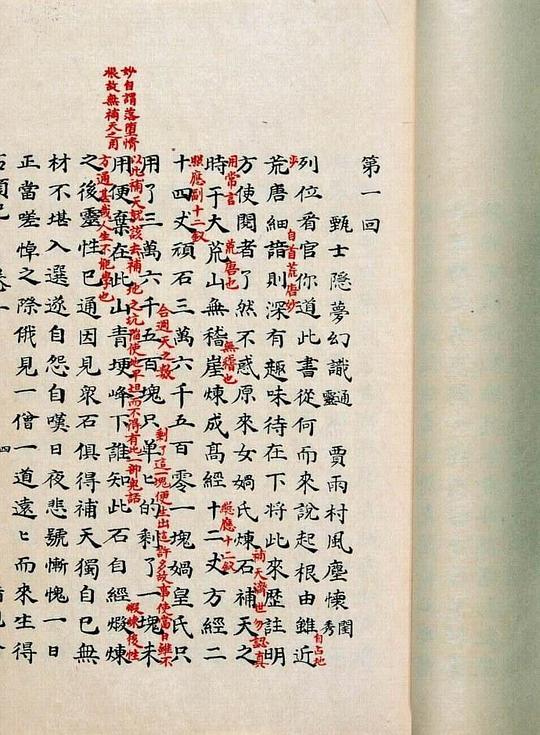 第一回
甄士隱夢幻識通靈　賈雨村風塵懷閨秀
列位看官你道此書從何而來說起根由雖近
自占地
步
荒唐細諳則深有趣味待在下將此來歷註明
自首荒唐妙
方使閱者了然不惑原來女媧氏煉石補天之
補天濟世勿認真
用常言
時于大荒山無稽崖煉成高經十二丈方經二
荒唐也
無稽也
照應十二釵
十四丈頑石三萬六千五百零一塊媧皇氏只
照應副十二釵
合週天之數
用了三萬六千五百塊只單匕的剩了一塊未
剩了這一塊便生出這許多故事使當日雖不
以此補天就該去補地之坑陷使地平坦而不得有此一部鬼話
用便棄在此山青埂峰下誰知此石自經煅煉
妙自謂落墮情
根故無補天之用
煅煉後性
方通甚哉人生不能學也
之後靈性已通因見衆石俱得補天獨自己無
材不堪入選遂自怨自嘆日夜悲號慚愧一日
正當嗟悼之際俄見一僧一道遠匕而來生得